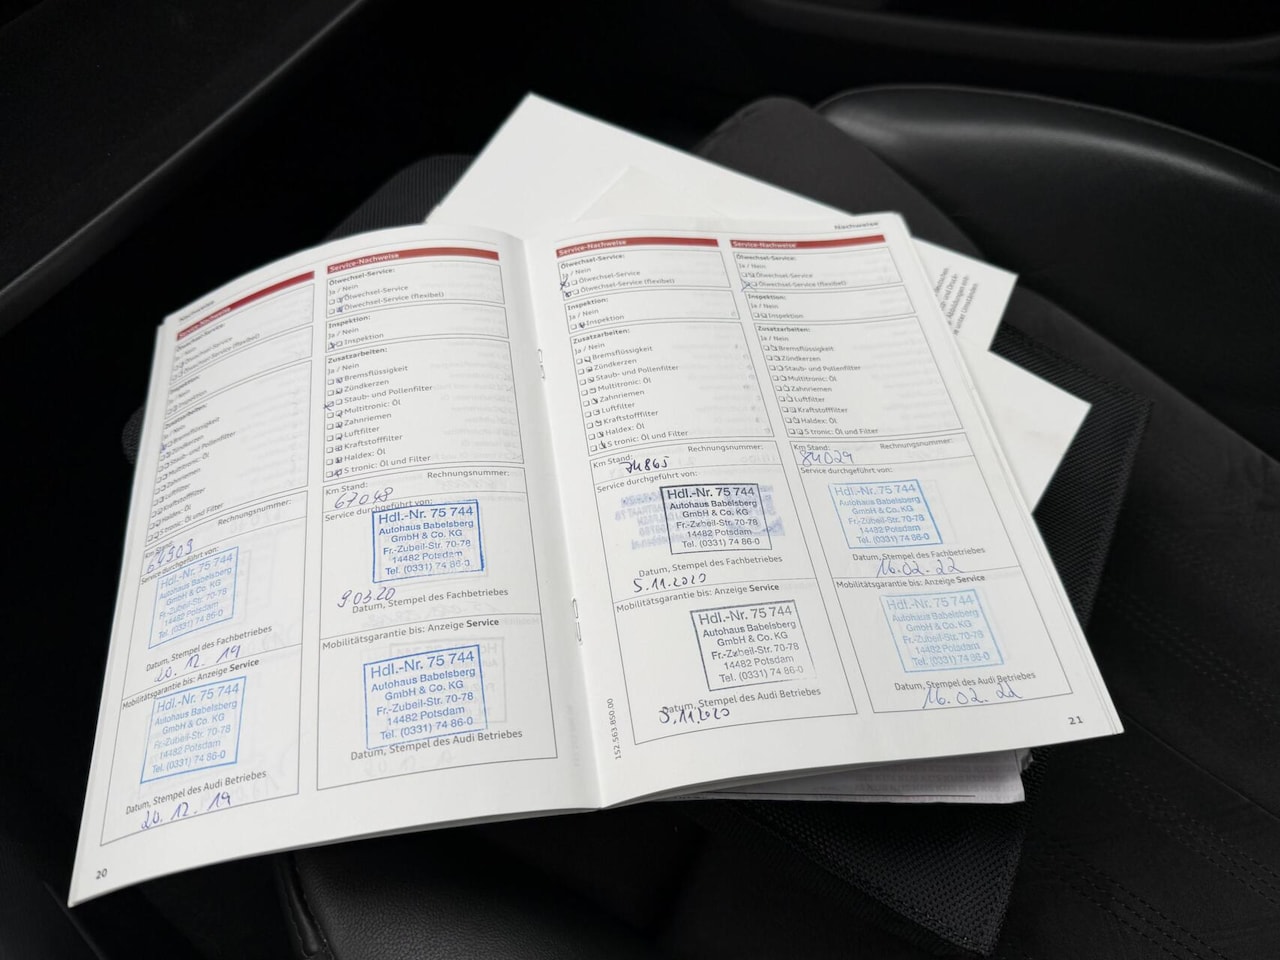 Nachweise
Service-Nachweise
Ölwechsel-Service:
Ja / Nein
Ölwechsel-Service
Ölwechsel-Service (flexibel)
Inspektion:
Ja / Nein
Inspektion
Zusatzarbeiten:
Ja / Nein
Bremsflüssigkeit
Zündkerzen
Staub- und Pollenfilter
Multitronic: Öl
Zahnriemen
Luftfilter
Kraftstofffilter
Haldex: Öl
S tronic: Öl und Filter
Rechnungsnummer:
Km Stand:
Service durchgeführt von:
Hdl.-Nr. 75 744
Autohaus Babelsberg
GmbH & Co. KG
Fr.-Zubeil-Str. 70-78
14482 Potsdam
Tel. (0331) 74 86-0
Datum, Stempel des Fachbetriebes
20.12.19
Mobilitätsgarantie bis: Anzeige Service
Hdl.-Nr. 75 744
Autohaus Babelsberg
GmbH & Co. KG
Fr.-Zubeil-Str. 70-78
14482 Potsdam
Tel. (0331) 74 86-0
Datum, Stempel des Audi Betriebes
20.12.19
20
Service-Nachweise
Ölwechsel-Service:
Ja / Nein
Ölwechsel-Service
Ölwechsel-Service (flexibel)
Inspektion:
Ja / Nein
Inspektion
Zusatzarbeiten:
Ja / Nein
Bremsflüssigkeit
Zündkerzen
Staub- und Pollenfilter
Multitronic: Öl
Zahnriemen
Luftfilter
Kraftstofffilter
Haldex: Öl
S tronic: Öl und Filter
Rechnungsnummer:
Km Stand:
67048
Service durchgeführt von:
Hdl.-Nr. 75 744
Autohaus Babelsberg
GmbH & Co. KG
Fr.-Zubeil-Str. 70-78
14482 Potsdam
Tel. (0331) 74 86-0
9.03.20
Datum, Stempel des Fachbetriebes
Mobilitätsgarantie bis: Anzeige Service
Hdl.-Nr. 75 744
Autohaus Babelsberg
GmbH & Co. KG
Fr.-Zubeil-Str. 70-78
14482 Potsdam
Tel. (0331) 74 86-0
Datum, Stempel des Audi Betriebes
Service-Nachweise
Ölwechsel-Service:
Ja / Nein
Ölwechsel-Service
Ölwechsel-Service (flexibel)
Inspektion:
Ja / Nein
Inspektion
Zusatzarbeiten:
Ja / Nein
Bremsflüssigkeit
Zündkerzen
Staub- und Pollenfilter
Multitronic: Öl
Zahnriemen
Luftfilter
Kraftstofffilter
Haldex: Öl
S tronic: Öl und Filter
Km Stand: Rechnungsnummer:
74865
Service durchgeführt von:
Hdl.-Nr. 75 744
Autohaus Babelsberg
GmbH & Co. KG
Fr.-Zubeil-Str. 70-78
14482 Potsdam
Tel. (0331) 74 86-0
Datum, Stempel des Fachbetriebes
5.11.2020
Mobilitätsgarantie bis: Anzeige Service
Hdl.-Nr. 75 744
Autohaus Babelsberg
GmbH & Co. KG
Fr.-Zubeil-Str. 70-78
14482 Potsdam
Tel. (0331) 74 86-0
Datum, Stempel des Audi Betriebes
5.11.2020
152.563.850.00
Nachweise
Service-Nachweise
Ölwechsel-Service:
Ja / Nein
Ölwechsel-Service
Ölwechsel-Service (flexibel)
Inspektion:
Ja / Nein
Inspektion
Zusatzarbeiten:
Ja / Nein
Bremsflüssigkeit
Zündkerzen
Staub- und Pollenfilter
Multitronic: Öl
Zahnriemen
Luftfilter
Kraftstofffilter
Haldex: Öl
S tronic: Öl und Filter
Km Stand: Rechnungsnummer:
84029
Service durchgeführt von:
Hdl.-Nr. 75 744
Autohaus Babelsberg
GmbH & Co. KG
Fr.-Zubeil-Str. 70-78
14482 Potsdam
Tel. (0331) 74 86-0
Datum, Stempel des Fachbetriebes
16.02.22
Mobilitätsgarantie bis: Anzeige Service
Hdl.-Nr. 75 744
Autohaus Babelsberg
GmbH & Co. KG
Fr.-Zubeil-Str. 70-78
14482 Potsdam
Tel. (0331) 74 86-0
Datum, Stempel des Audi Betriebes
16.02.22
21